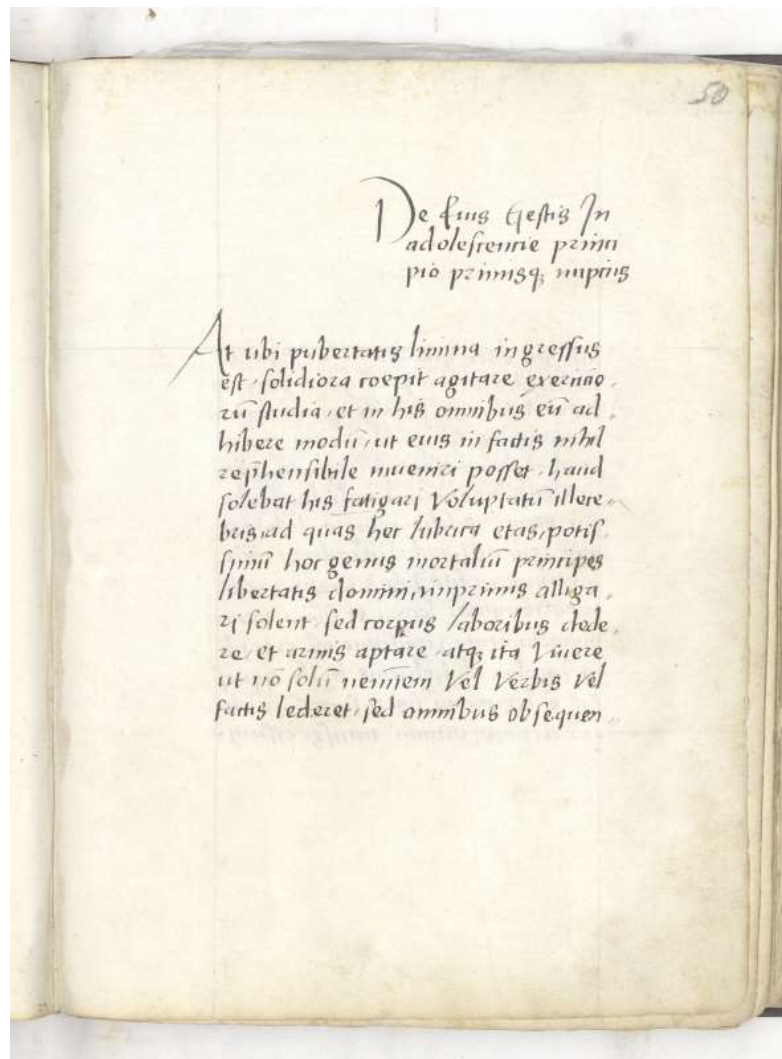 50
De Eius Gestis In
adolescentie princi
pio primisq; nuptiis
At ubi pubertatis limina ingressus
est, solidiora coepit agitare exercitio,
rū studia, et in his omnibus eū ad,
hibere modū, ut eius in factis nihil
rephensibile inveniri posset, haud
solebat his fatigari Voluptatū illece,
bris, ad quas hec lubrica etas, potis,
simū hoc genus mortaliū principes
libertatis domini, inprimis alliga,
ri solent, sed corpus laboribus dede,
re, et armis aptare, atq; ita Vivere
ut nō solū neminem Vel Verbis Vel
factis lederet, sed omnibus obsequen,